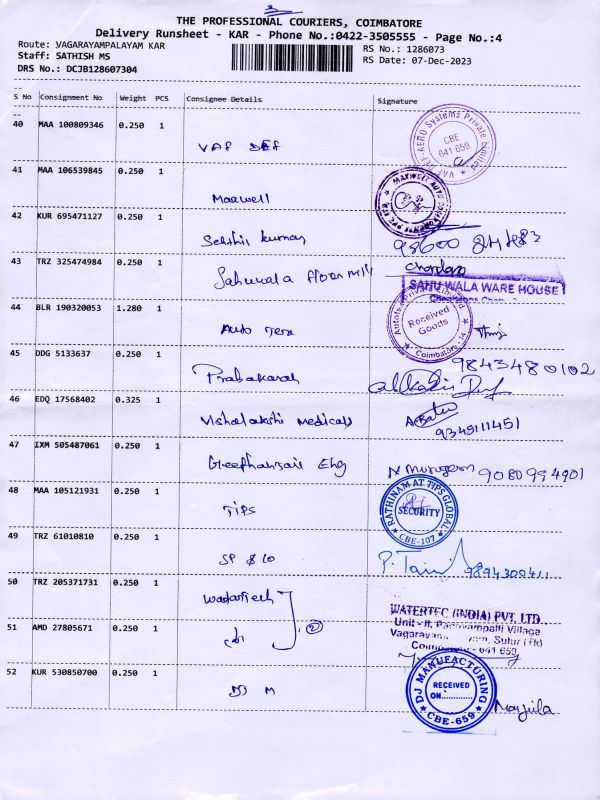 THE PROFESSIONAL COURIERS, COIMBATORE
Delivery Runsheet - KAR - Phone No.:0422-3505555 - Page No.:4
Route: VAGARAYAMPALAYAM KAR
RS No.: 1286073
Staff: SATHISH MS
RS Date: 07-Dec-2023
DRS No.: DCJB128607304
S No Consignment No Weight PCS Consignee Details Signature
40 MAA 100809346 0.250 1
CBE 641 659
41 MAA 106539845 0.250 1 Maxwell
42 KUR 695471127 0.250 1 Senthil Kumar
43 TRZ 325474984 0.250 1 Sahuwala Floor Mill
SAHU WALA WARE HOUSE
44 BLR 190320053 1.280 1 Auto Tera
Received Goods Coimbatore-14
45 DDG 5133637 0.250 1 Prabakaran 9843480102
46 EDQ 17568402 0.325 1 Vishalakshi Medicals
9345111451
47 IXM 505487061 0.250 1 Eng N Murugesan 9080994901
48 MAA 105121931 0.250 1 TIPS
RATHINAM AT TIPS GLOBAL SECURITY CBE-107
49 TRZ 61010810 0.250 1
9894300411
50 TRZ 205371731 0.250 1 Watertech
WATERTEC (INDIA) PVT. LTD
Unit - II, Village
51 AMD 27805671 0.250 1 do 2
Sulur (Tk)
641 659
52 KUR 530850700 0.250 1 DJ M
DJ MANUFACTURING RECEIVED ON CBE-659
Manjula